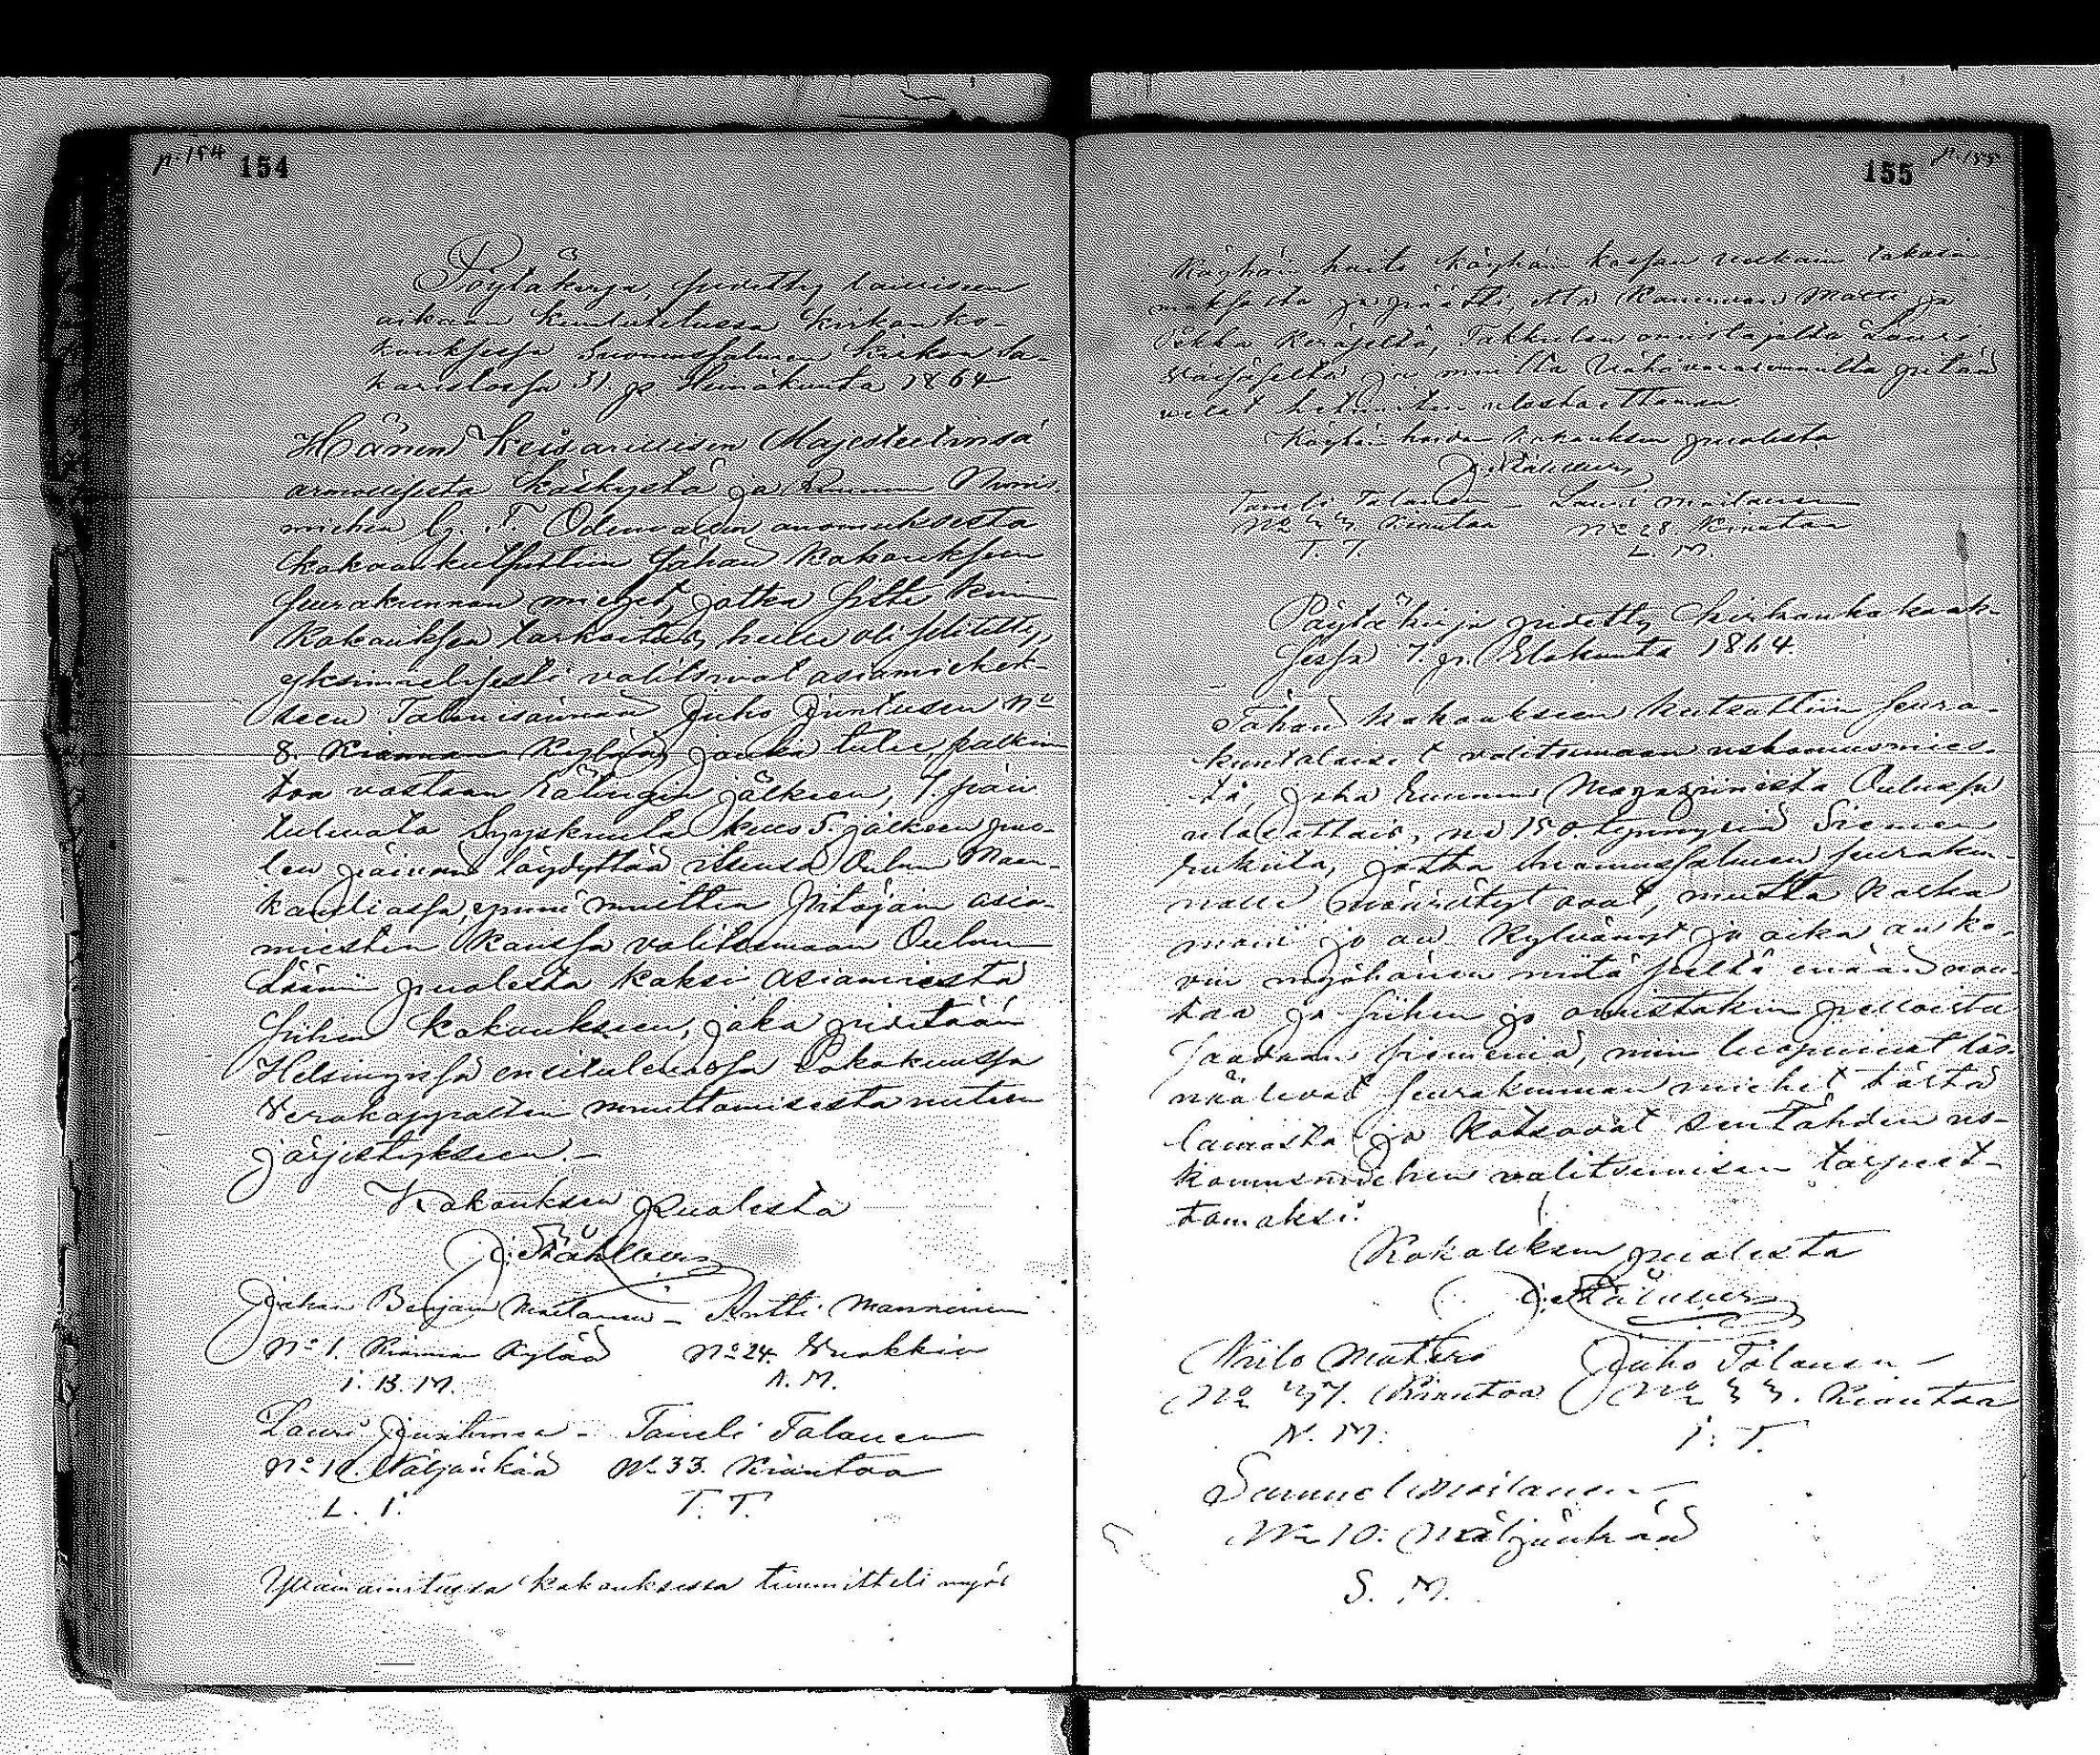 p. 154 154
Pöytäkirja, pidetty lailliseen
aikaan kuulutetussa kirkonko-
kouksessa Suomussalmen kirkon sa-
karistossa 31 p. Heinäkuuta 1864
Hänen Keisarillisen Majesteetinsä
armollisesta käskystä ja Ruunun Nimis-
miehen G. F. Odenvallin anomuksesta
kokoonkutsuttiin tähän kokoukseen
seurakunnan miehet, jotka sitte kuin
kokouksen tarkoitus heille oli selitetty,
yksimielisesti valitsivat asiamiehek-
seen Talonisännän Juho Juntusen No
8. Kiannan Kylästä, jonka tulee, palkin-
toa vastaan kätingin jälkeen, 7. päiv.
tulevata Syyskuuta kello 5. jälkeen puo-
len päivän löydyttää itsensä Oulun Maan-
kansliassa, ynnä muitten pitäjäin asia-
miesten kanssa valitsemaan Oulun
Läänin puolesta kaksi asiamiestä
siihen kokoukseen, joka pidetään
Helsingissä ensitulevassa Lokakuussa
Verokappalten muuttamisesta uuteen
järjestykseen.-
Kokouksen puolesta
J. Ståhlberg
Johan Benjam Moilanen - Antti Manninen
No 1. Kiannan Kylää No 24. Vuokkia
J. B. M. A. M.
Lauri Juntunen - Taneli Talanen
No 10. Näljänkää No 33. Kiantaa
L. J. T. T.
Ylämainitussa kokouksessa tuumitteli myös
155 p. 155
Köyhäin hoito köyhäin kassan velkain takasin
maksosta ja päätti, että Matti ja
Pekka Keräseltä, Takkulan omistajalta Lauri
ja muilta pitää
velat ulosotettaman
Köyhäin hoidon kokouksen puolesta
J. Ståhlberg
Taneli Talanen - Lauri Moilanen
No 33. Kiantaa No 28. Kiantaa
T. T. L. M.
Pöytäkirja pidetty kirkonkokouk-
sessa 7. p. Elokuuta 1864.
Tähän kokoukseen kutsuttiin seura-
kuntalaiset valitsemaan uskomusmies-
tä, joka Ruunun Magaziinista Oulussa
ulosottais, ne 150. tynnyriä Siemen
rukiita, jotka Suomussalmen seurakun-
nalle määrätyt ovat, mutta koska
moni jo on kylvänyt ja aika on ko-
vin myöhäinen niitä sieltä enään nou-
taa ja siihen jo omistakin pelloista
saadaan siemeniä, niin luopuivat läs-
näolevat seurakunnan miehet tästä
lainasta ja katsovat sentähden us-
komusmiehen valitsemisen tarpeet-
tomaksi.
Kokouksen puolesta
J. Ståhlberg
Niilo Matero Juho Talanen -
No 37. Kiantaa No 33. Kiantaa
N. M. J. T.
Samuel Moilanen
No 10. Näljänkää
S. M.